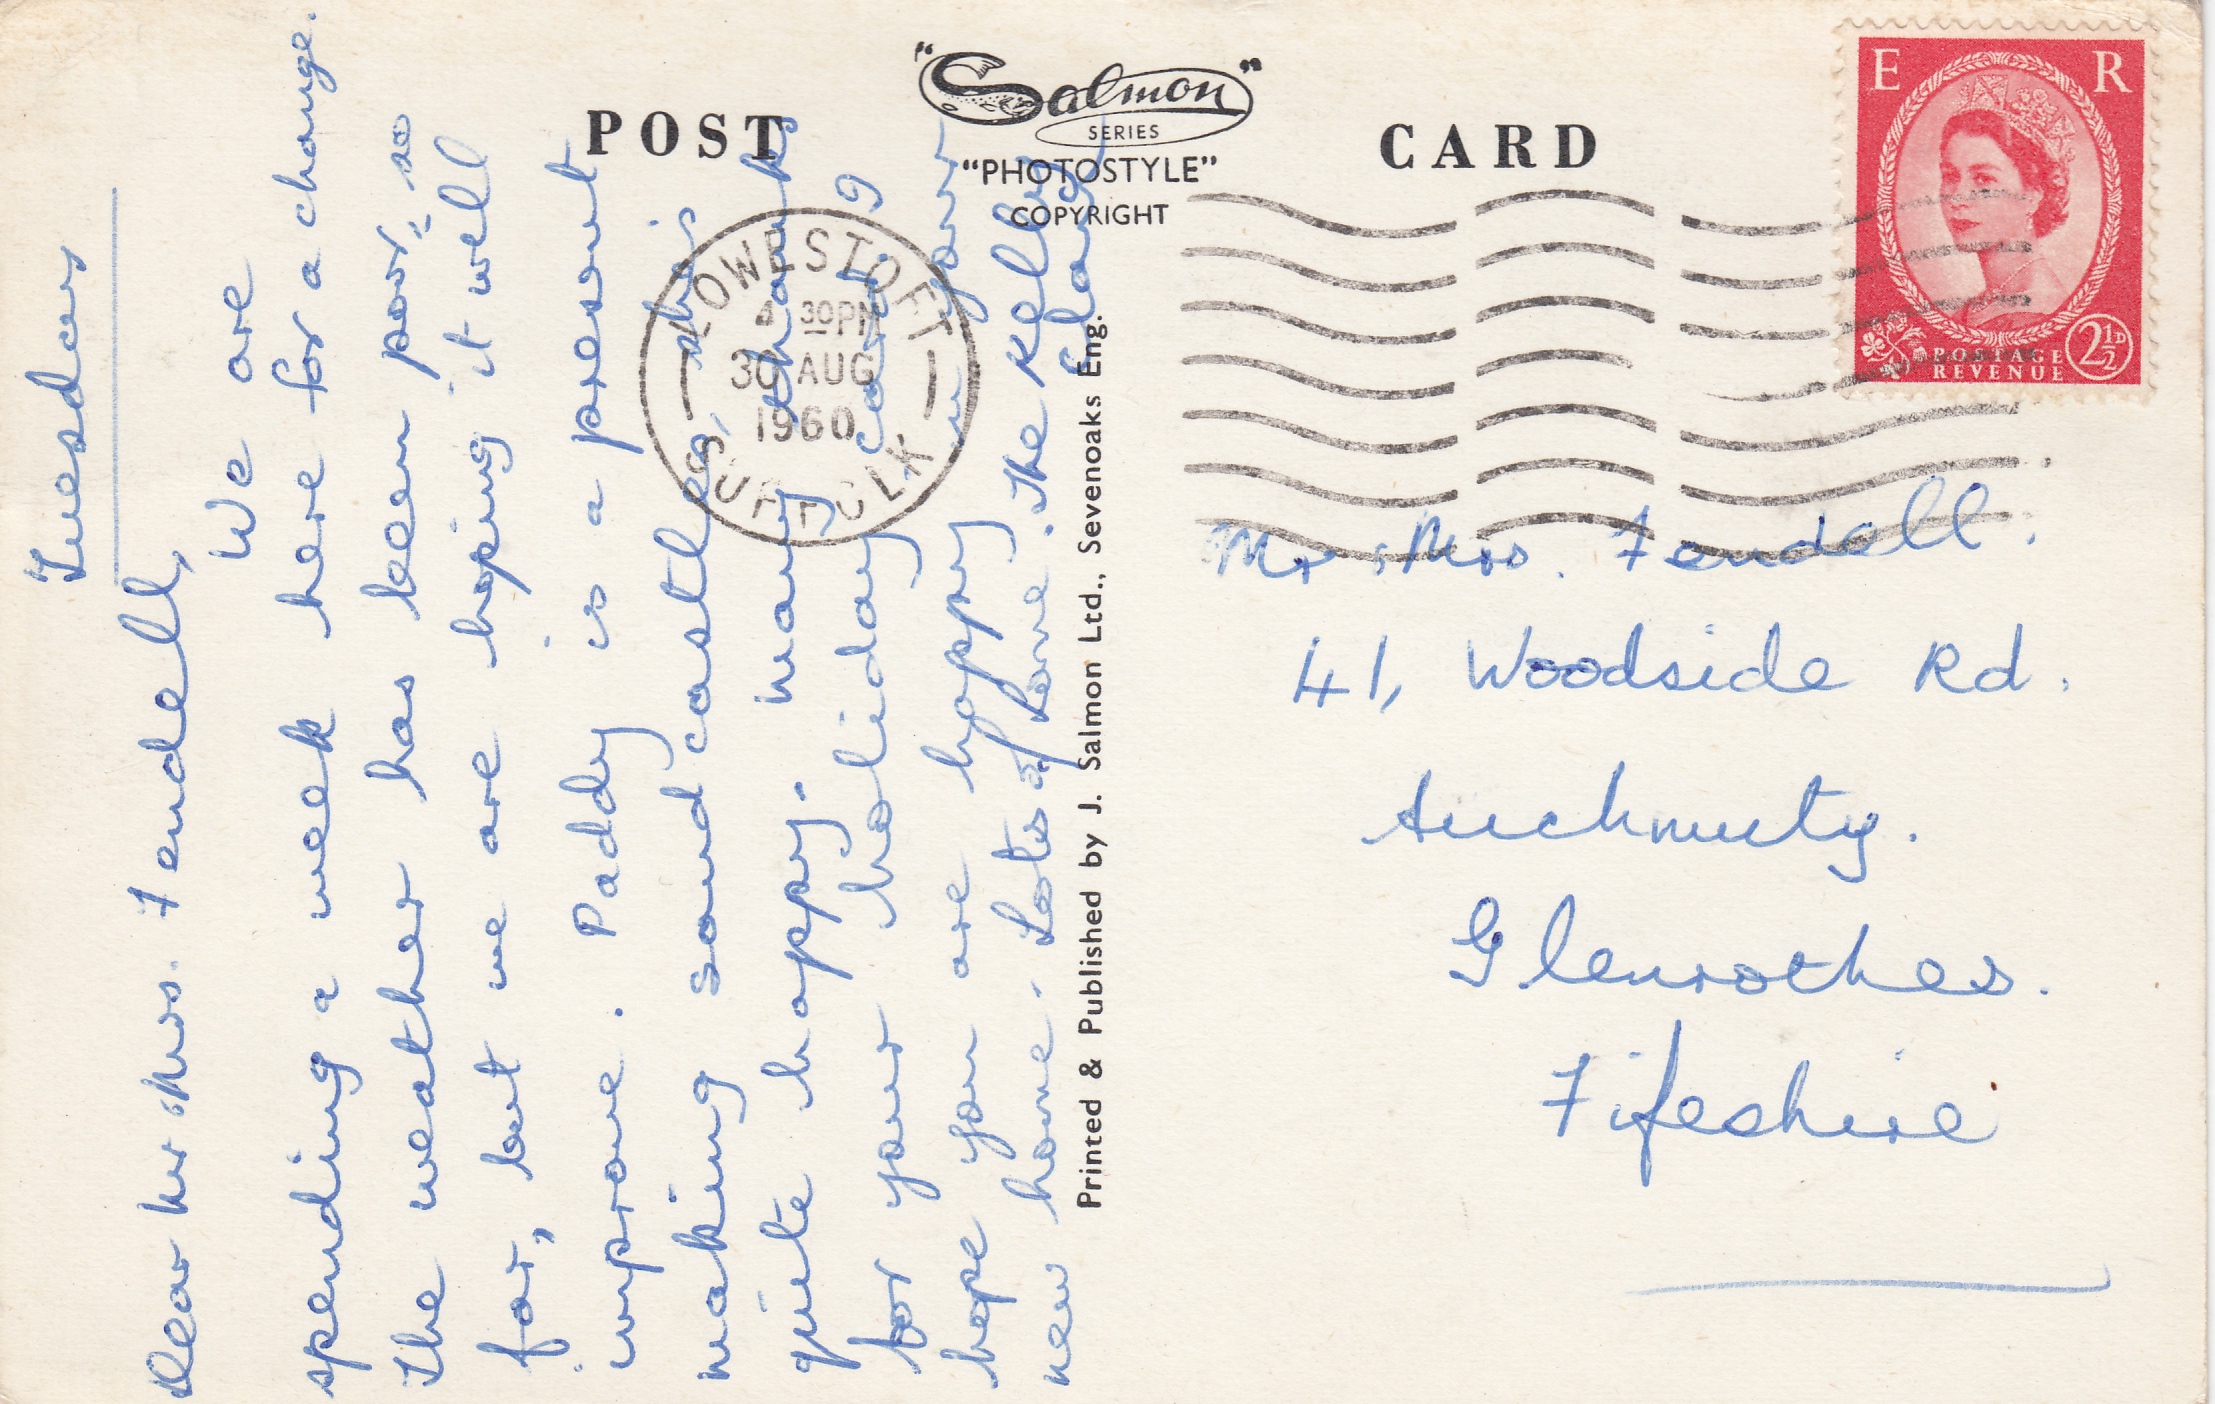 POST CARD
"Salmon"
SERIES
"PHOTOSTYLE"
COPYRIGHT
E R
POSTAGE
REVENUE
2½D
LOWESTOFT
4 30PM
30 AUG
1960
SUFFOLK
Tuesday
Dear Mr & Mrs. Fendell,
We are
spending a week here for a change.
The weather has been poor, so
far, but we are hoping it will
improve. Paddy is a present
making sand castles, she's
quite happy. many thanks
for your holiday card, I
hope you are happy in your
new home. Lots of Love. The Kellys
Printed & Published by J. Salmon Ltd., Sevenoaks Eng.
Mr & Mrs. Fendell.
41, Woodside Rd.
Auchmuty.
Glenrothes.
Fifeshire